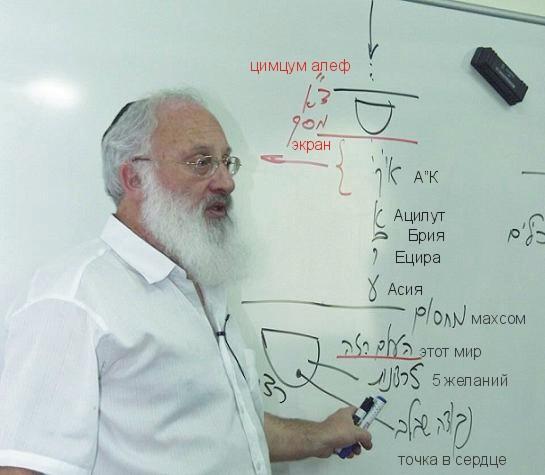 цимцум алеф
צ"א
מסך
экран
א"ק А"К
א Ацилут
ב Брия
י Ецира
ע Асия
מחסום махсом
העולם הזה этот мир
רצונות 5 желаний
נקודה שבלב
точка в сердце